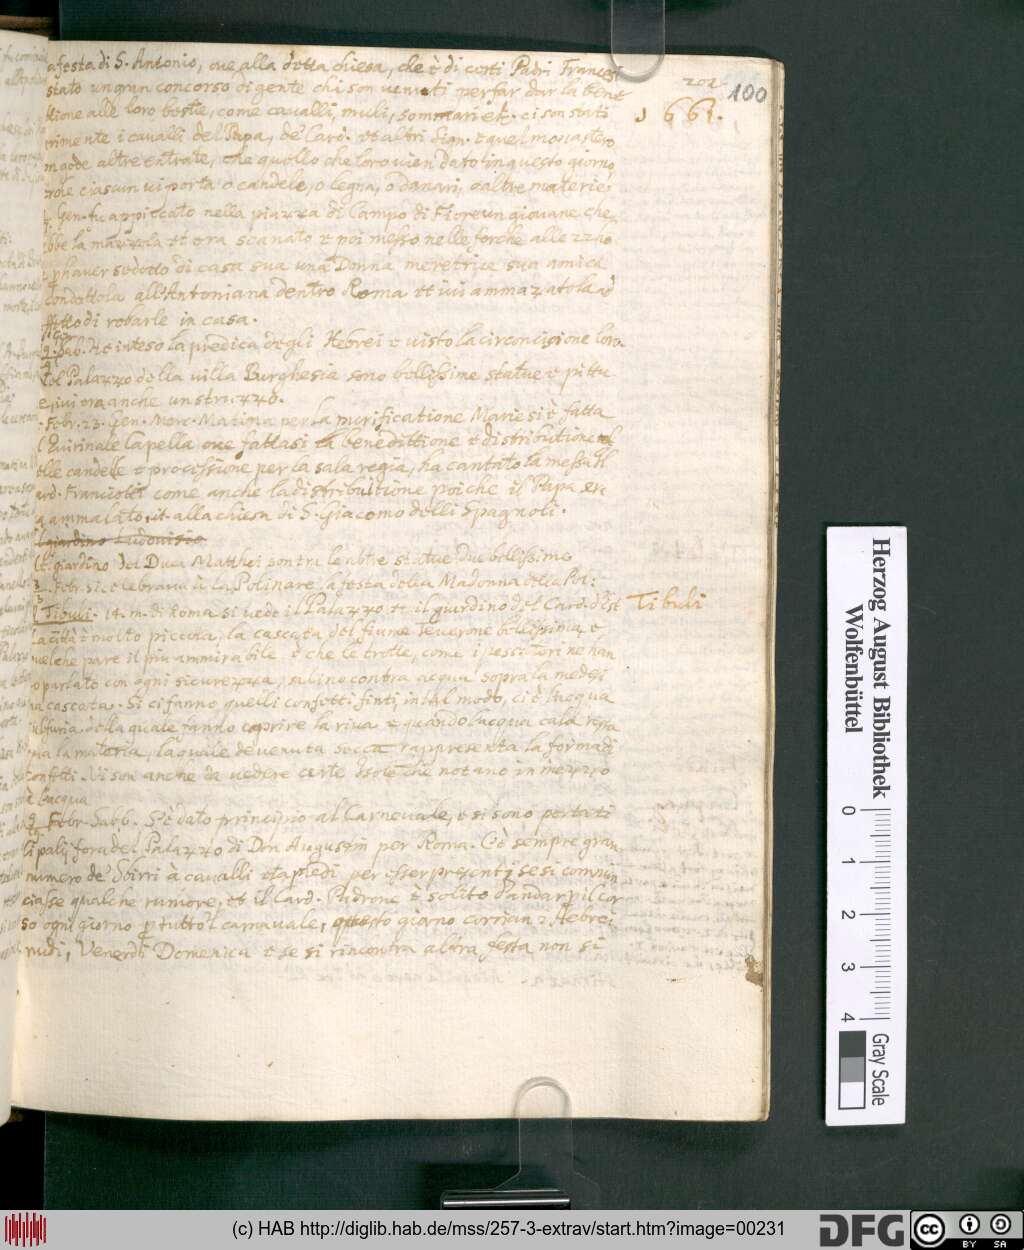 202
100
a festa di S. Antonio, oue alla detta chiesa, che è di certi Padri Francesi
stato un gran concorso di gente chi son venuti per far dar la bene
ttione alle loro bestie, come cavalli, muli, sommari etc. ci son stati
1661.
rimente i cavalli del Papa, de' Card. et altri Sign. e quel monastero
n gode altre entrate, che quello che loro vien dato in questo giorno
ciascun vi porta o candele, o legna, o danari, o altre materie
Gen. fu appiccato nella piazza di Campo di Fiore un giovane che
bbe la mazzola et era scanato e poi messo nelle forche alle 22 ho.
haver sedotto di casa sua una Donna meretrice sua amica
condottola all'Antoniana dentro Roma et ivi ammazatola
di robarle in casa.
Sab. Hò inteso la predica degli Hebrei e visto la circoncisione loro
el Palazzo della villa Burghesia sono bellissime statue e pittu
e, ivi era anche un struzzo.
Febr. 23. Gen. Merc. Matina per la purificatione Marie si è fatta
Quirinale Capella oue fattasi la benedittione e distributione
elle candelle e processione per la sala regia, ha cantato la messa il
ard. Franciotti come anche la distribuitione poiche il Papa era
a ammalato, it. alla chiesa di S. Giacomo delli Spagnoli.
il giardino Ludovisio
giardino del Duca Matthei son tra le altre statue due bellissime
Febr. si celebrava à la Polinare la festa della Madonna della Pol:
Tibuli. 14. m. di Roma si vede il Palazzo et il giardino del Card. d'Est
Tibuli
La città è molto piccola, la cascata del fiume Teverone bellissima, e
uelche pare il più ammirabile è che le trotte, come i pescatori ne han
o parlato con ogni sicurezza, salino contra acqua sopra la medesi
a cascata. Si ci fanno quelli confetti finti in tal modo, ci è l'acqua
ulfuria della quale fanno coprire la riva e quando l'acqua cala resta
ma la materia, la quale devenuta secca rappresenta la forma di
onfetti. Vi son anche da vedere certe Isole che notano in mezzo
à l'acqua
9. Febr. Sabb. S'è dato principio al Carnevale, e si sono portati
li palij fora del Palazzo di Don Augustin per Roma. C'è sempre gran
numero de' Sbirri à cavalli et a piedi per esser presenti se si comin
ciasse qualche rumore, et il Card. Padrone è solito d'andar pil Cor
so ogni giorno p tutto'l carnavale, questo giorno corrian 2 Hebrei
nudi, Venerdì Domenica e se si rincontra altra festa non si
Herzog August Bibliothek
Wolfenbüttel
0 1 2 3 4
Gray Scale
(c) HAB http://diglib.hab.de/mss/257-3-extrav/start.htm?image=00231
DFG
cc BY SA